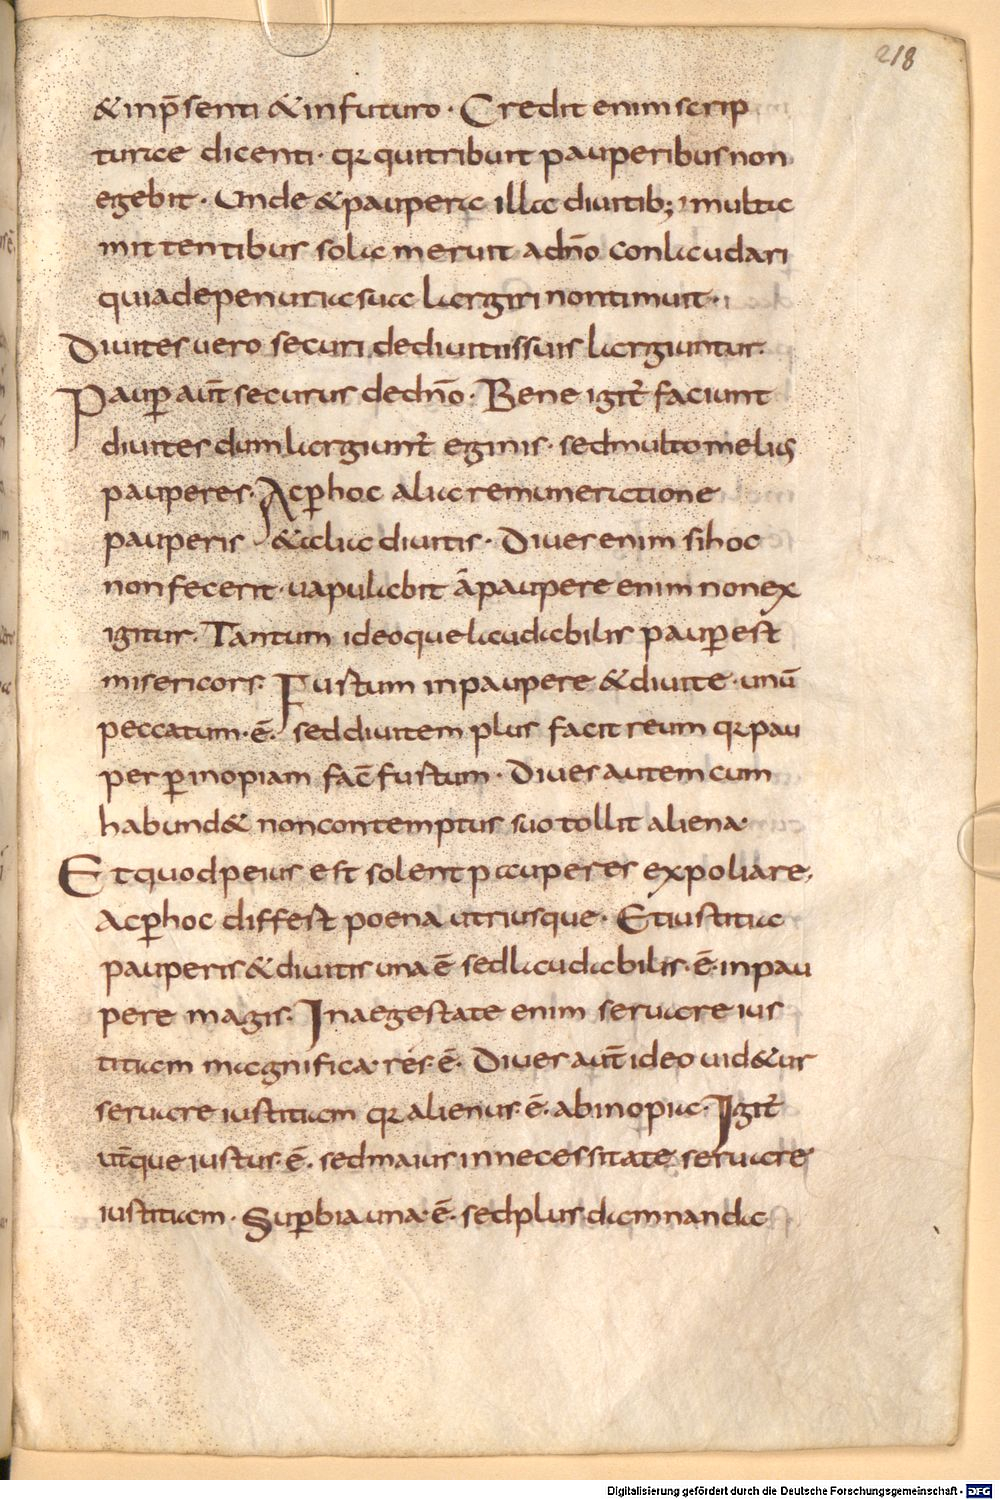 218
& inp̄senti & infuturo · Credit enim scrip
turae dicenti · qꝛ quitribuit pauperibus non
egebit · Unde & paupera illa diuitib; multa
mittentibus sola meruit adnō conlaudari
quiadepenuria sua largiri nontimuit ·
Diuites uero securi dediuitiis suis largiuntur.
Paup̱ aut̄ securus dednō · Bene igit̄ faciunt
diuites dum largiunt̄ egenis · sedmulto melius
pauperes · Acp̱hoc alia remuneratione
pauperis & alia diuitis · Diues enim sihoc
nonfecerit · uapulabit āpaupere enim nonex
igitur · Tantum ideoquelaudabilis paup̱ est
misericors · Furtum inpaupere & diuite · unū
peccatum · ē · seddiuitem plus facit reum qꝛ pau
per p̱inopiam fac̄ furtum · Diues autem cum
habund& noncontemptus suo tollit aliena ·
Et quodpeius est solent pauperes expoliare ·
Acp̱hoc differt poena utriusque · Et iustitia
pauperis & diuitis una ē sedlaudabilis · ē · inpau
pere magis · Inaegestate enim seruare ius
titiam magnifica · res · ē · Diues aut̄ ideo uid&ur
seruare iustitiam qꝛ alienus · ē · abinopia · Igit̄
ut̄que iustus · ē · sedmaius innecessitate seruare
iustitiam · Sup̱bia una · ē · sedplus damnanda
Digitalisierung gefördert durch die Deutsche Forschungsgemeinschaft - DFG